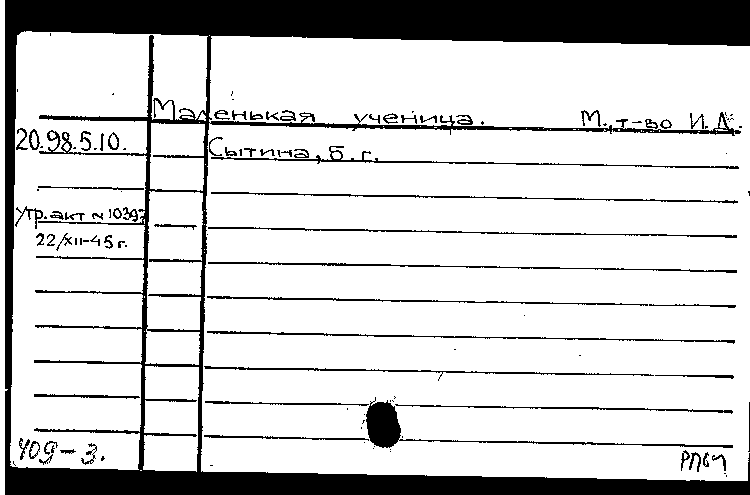 Маленькая ученица. М., т-во И.Д.
20.98.5.10.
Сытина, б. г.
утр. акт № 10397
22/XII-45 г.
409-3.